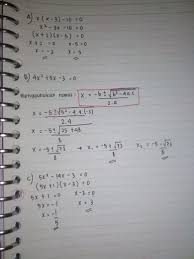 A) x(x-3)-10=0
x²-3x-10=0
(x+2)(x-5)=0
x+2=0 x-5=0
x=-2 x=5
B) 4x²+5x-3=0
Menggunakan rumus: x = -b±√b²-4ac / 2.a
x = -5±√5²-4.4.(-3) / 2.4
x = -5±√25+48 / 8
x = -5±√73 / 8 → x₁ = -5+√73 / 8 x₂ = -5-√73 / 8
C) 5x²-14x-3=0
(5x+1)(x-3)=0
5x+1=0 x-3=0
5x=-1 x=3
x=-1/5